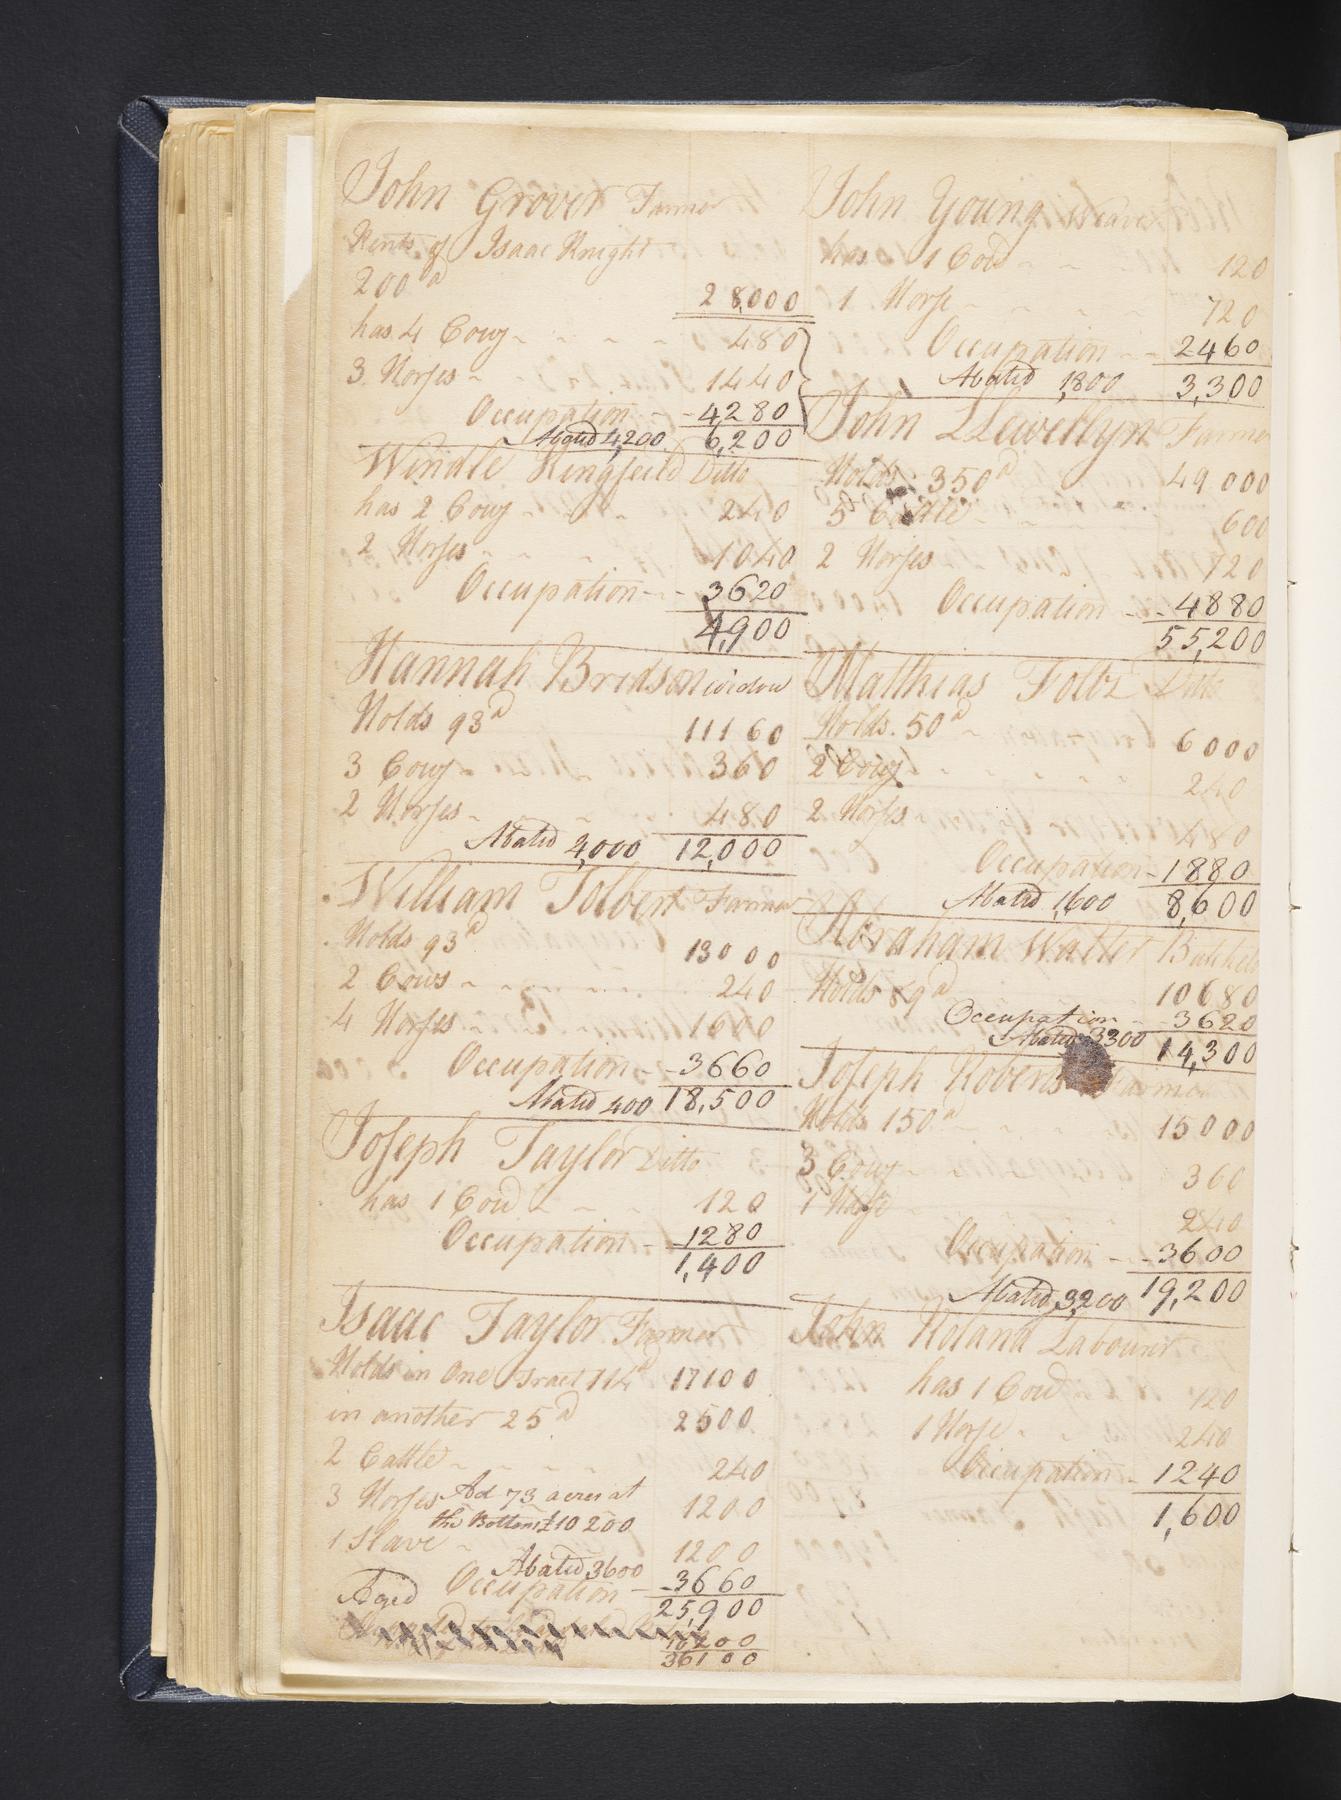 John Grover Farmer
Rents of Isaac Knight
200 a
28,000
has 4 Cows 480
3 Horses 1440
Occupation 4280
Abated 4,200 6,200
Windle Kingfield Ditto
has 2 Cows 240
2 Horses 1040
Occupation 3620
4,900
Hannah Bridson widow
Holds 93 a 11160
3 Cows 360
2 Horses 480
Abated 4,000 12,000
William Tolbert Farmer
Holds 93 a 13000
2 Cows 240
4 Horses 1600
Occupation 3660
Abated 400 18,500
Joseph Taylor Ditto
has 1 Cow 120
Occupation 1280
1,400
Isaac Taylor Farmer
Holds in one Tract 114 a 17100
in another 25 a 2500
2 Cattle 240
3 Horses 1200
Ad 73 acres at
the Bottom £10200
1 Slave 1200
Abated 3600
Aged Occupation 3660
25,900
10200
36100
John Young Weaver
has 1 Cow 120
1 Horse 720
Occupation 2460
Abated 1,800 3,300
John Llewellyn Farmer
Holds 350 a 49000
5 Cattle 600
2 Horses 720
Occupation 4880
55,200
Matthias Folbz Ditto
Holds 50 a 6000
2 Cows 240
2 Horses 480
Occupation 1880
Abated 1,600 8,600
Abraham Walter
Holds 89 a 10680
Occupation 3620
Abated 3300 14,300
Joseph Roberts Farmer
Holds 150 a 15000
3 Cows 360
1 Horse 240
Occupation 3600
Abated 3,200 19,200
John Roland Labourer
has 1 Cow 120
1 Horse 240
Occupation 1240
1,600